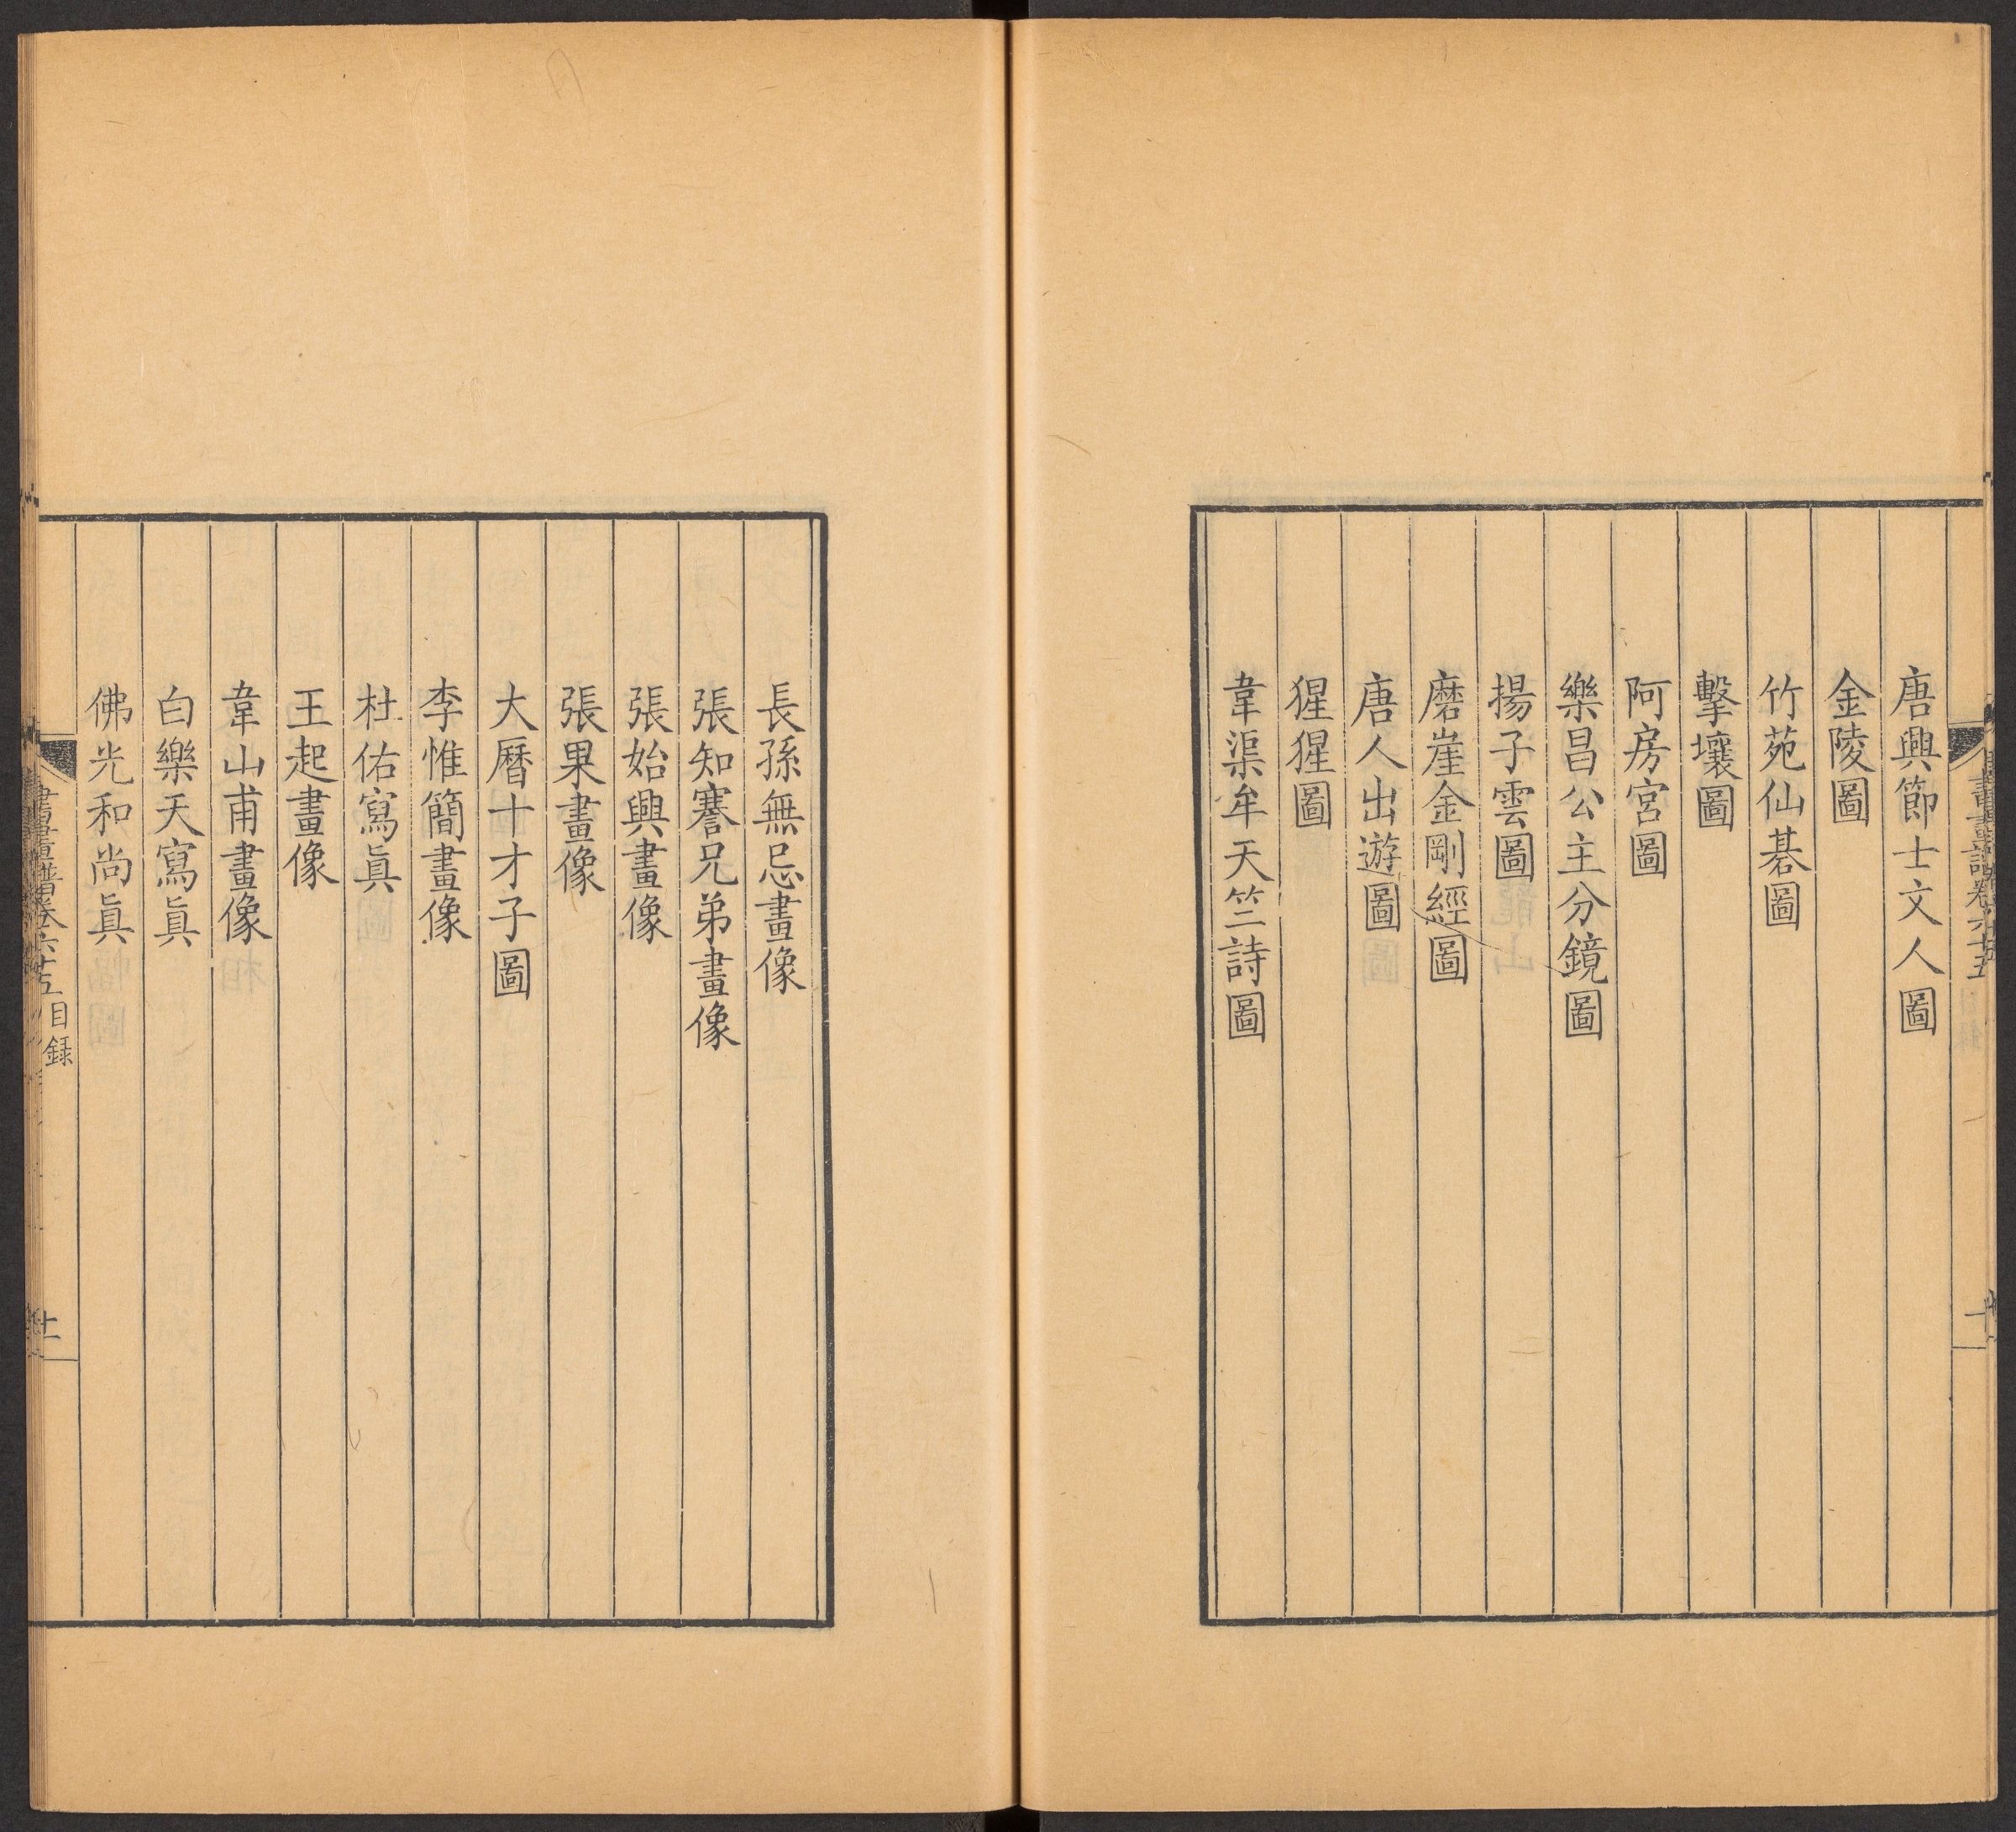 唐興節士文人圖
金陵圖
竹苑仙碁圖
擊壤圖
阿房宮圖
樂昌公主分鏡圖
揚子雲圖
磨崖金剛經圖
唐人出遊圖
猩猩圖
韋渠牟天竺詩圖
長孫無忌畫像
張知謇兄弟畫像
張始興畫像
張果畫像
大曆十才子圖
李惟簡畫像
杜佑寫眞
王起畫像
韋山甫畫像
白樂天寫眞
佛光和尚眞
書畫譜卷六十五 目錄